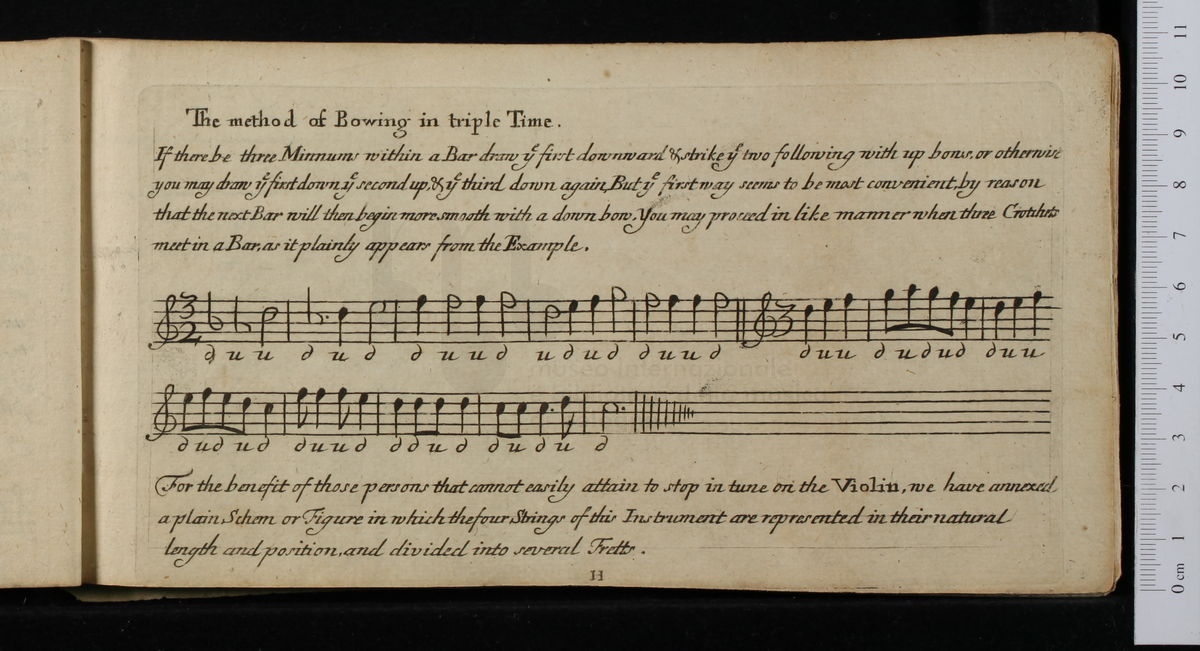 The method of Bowing in triple Time.
If there be three Minnums within a Bar draw yͤ first downward & strike yͤ two following with up bows, or otherwise
you may draw yͤ first down, yͤ second up, & yͤ third down again, But yͤ first way seems to be most convenient, by reason
that the next Bar will then begin more smooth with a down bow, You may proceed in like manner when three Crotchets
meet in a Bar, as it plainly appears from the Example.
3 2 3
d u u d u d d u u d u d u d d u u d d u u d u d u d d u u
d u d u d d u u d d d u d d u d u d
museo internazionale
For the benefit of those persons that cannot easily attain to stop in tune on the Violin, we have annexed
a plain Schem or Figure in which the four Strings of this Instrument are represented in their natural
length and position, and divided into several Fretts.
H
0 cm 1 2 3 4 5 6 7 8 9 10 11